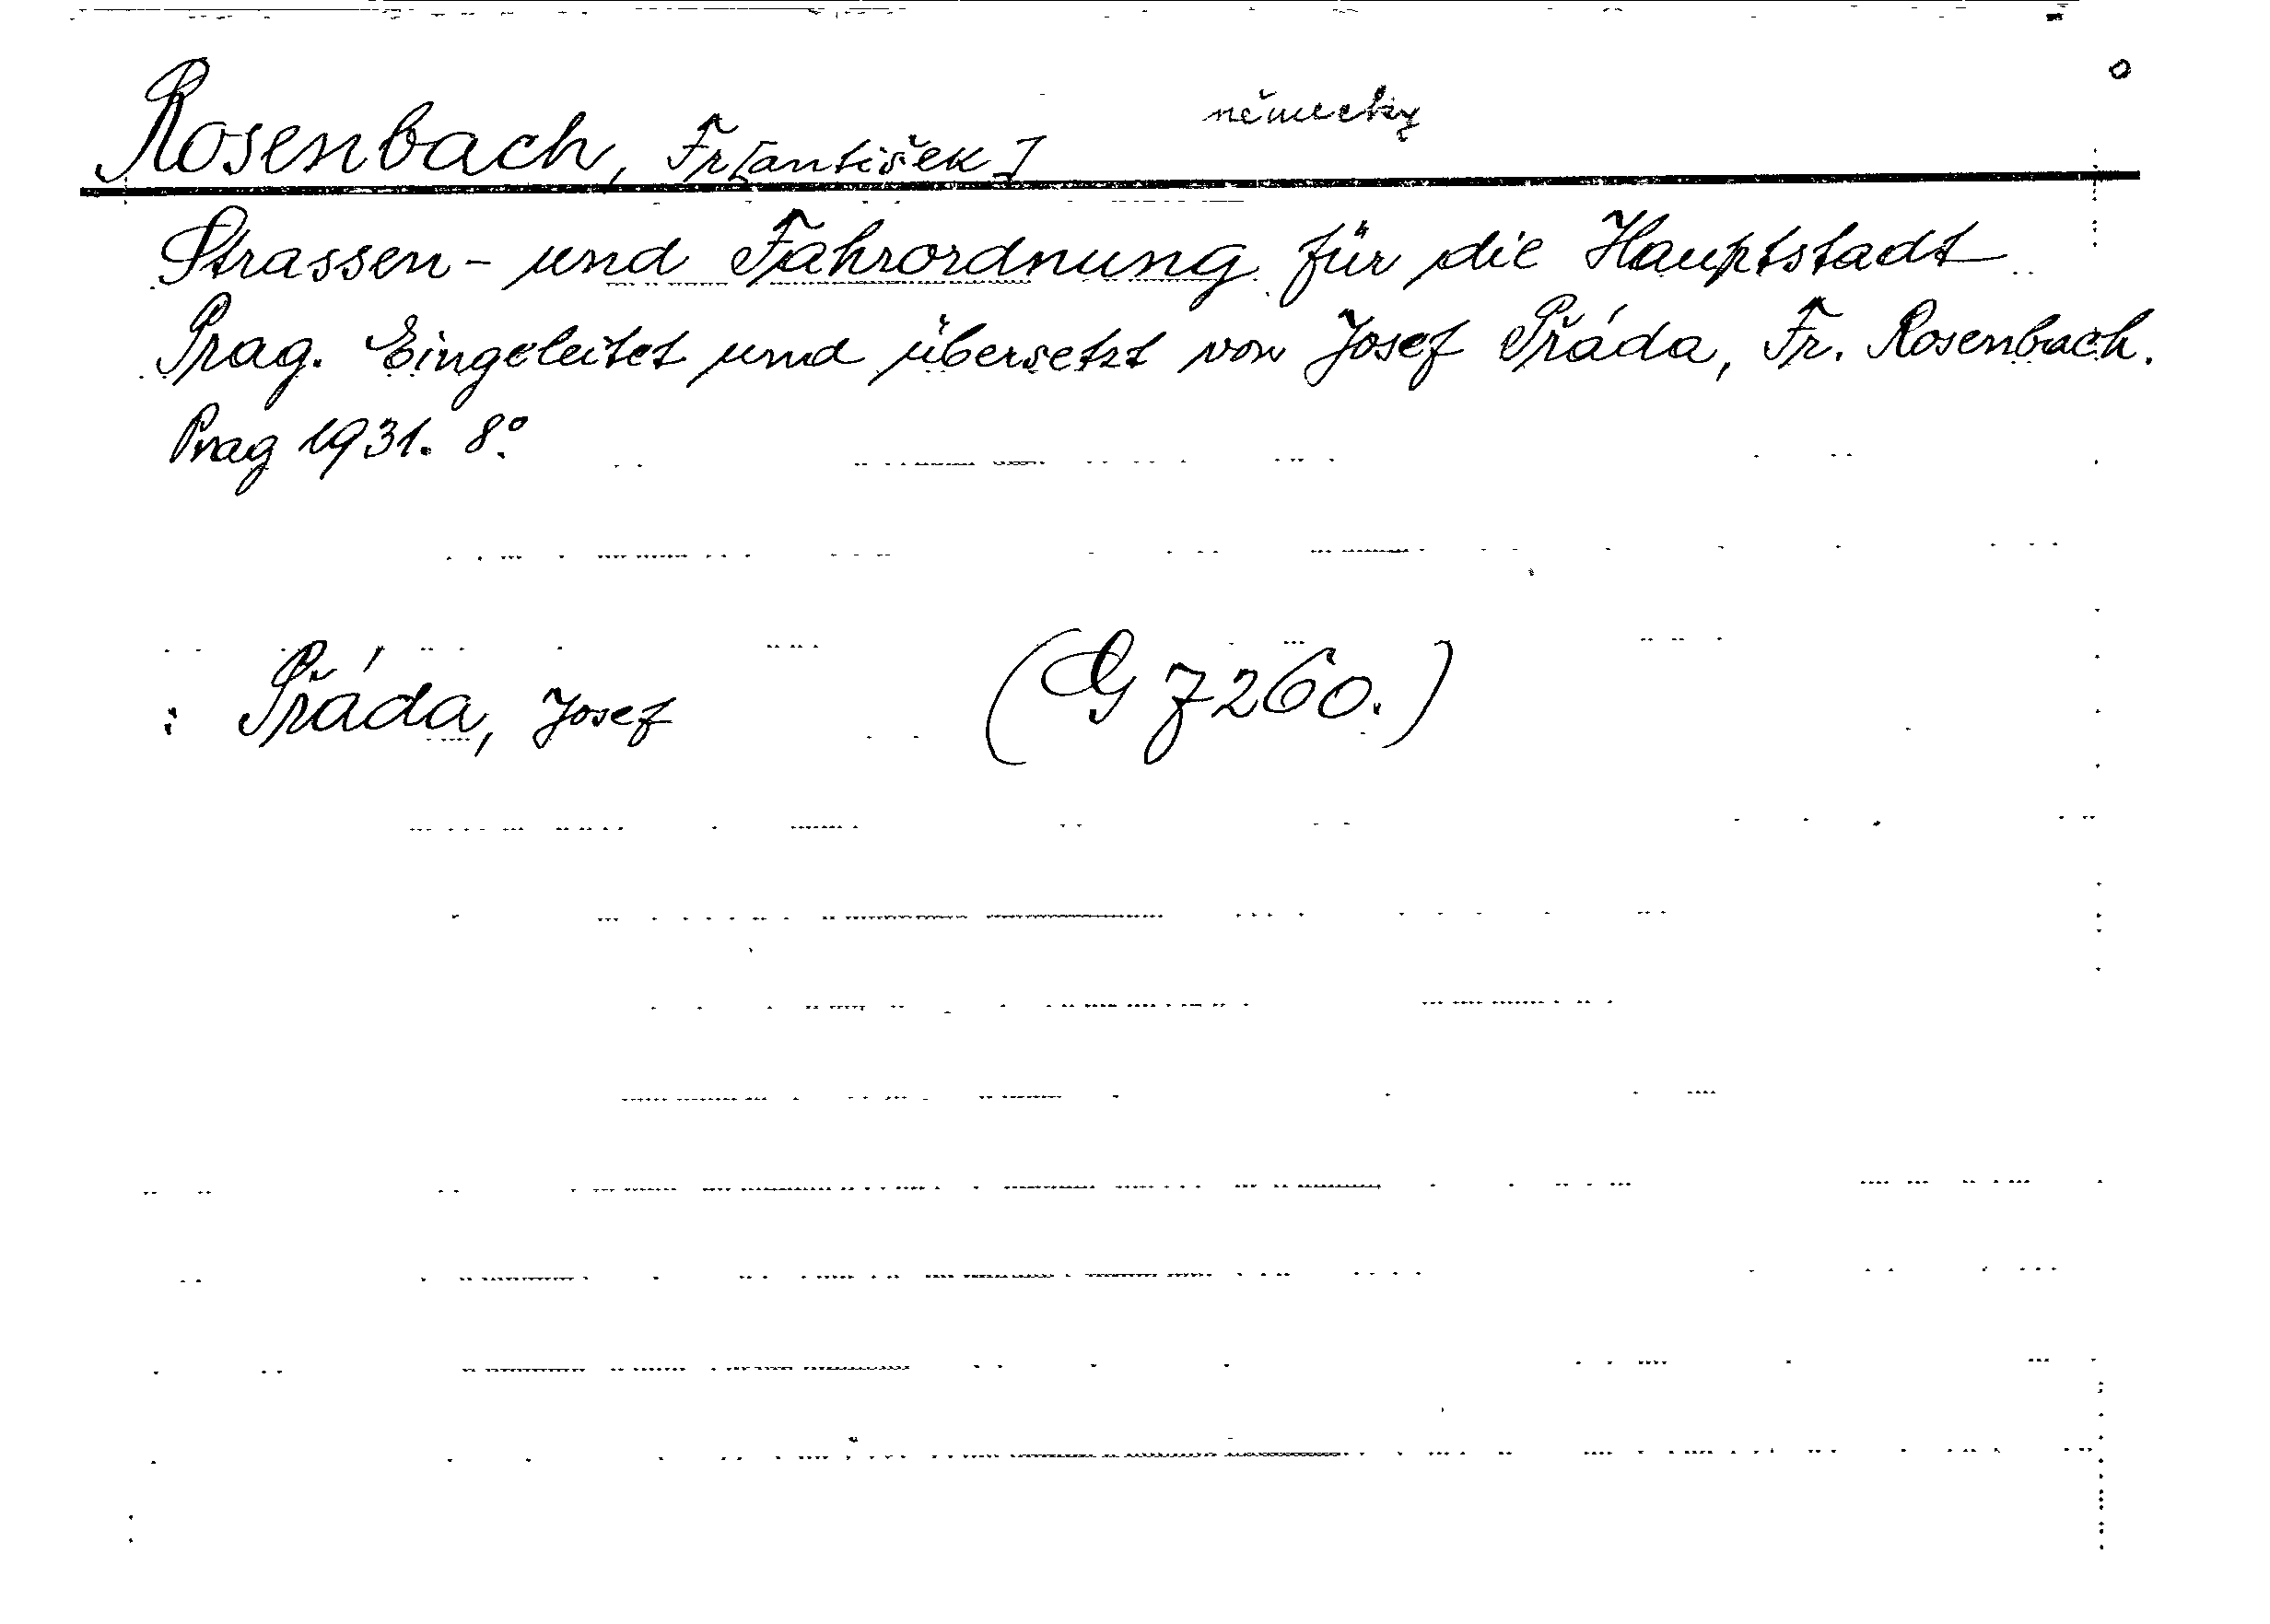 Rosenbach, Fr[antišek] německy
Strassen- und Fahrordnung für die Hauptstadt
Prag. Eingeleitet und übersetzt von Josef Přáda, Fr. Rosenbach.
Prag 1931. 8°.
: Přáda, Josef (G 7260.)